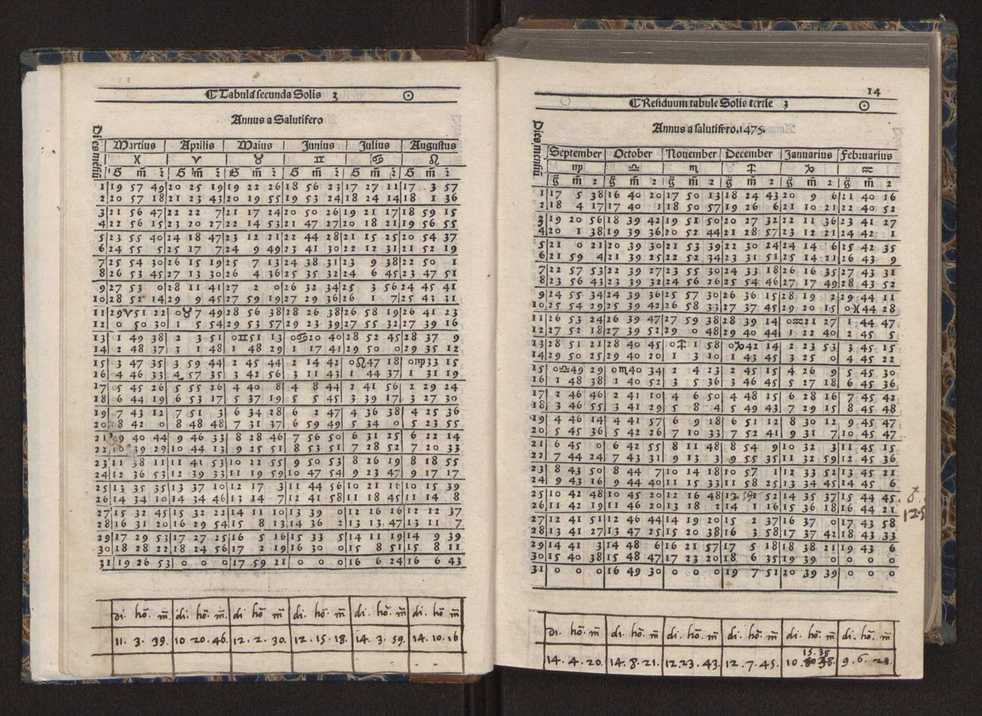 Tabula secunda Solis 3 ☉
Annus a Salutifero
Dies mēsis
Martius Aprilis Maius Junius Julius Augustus
♓ ♈ ♉ ♊ ♋ ♌
G m̄ 2 G m̄ 2 G m̄ 2 G m̄ 2 G m̄ 2 G m̄ 2
1 19 57 49 20 25 19 19 22 26 18 56 23 17 27 11 17 3 57
2 20 57 18 21 23 43 20 19 55 19 53 24 18 24 14 18 1 36
3 21 56 47 22 22 7 21 17 24 20 50 26 19 21 17 18 59 15
4 22 56 15 23 20 27 22 14 53 21 47 27 20 18 21 19 56 55
5 23 55 40 24 18 47 23 12 21 22 44 28 21 15 25 20 54 37
6 24 55 5 25 17 7 24 9 49 23 41 30 22 12 31 21 52 19
7 25 54 30 26 15 19 25 7 13 24 38 31 23 9 38 22 50 1
8 26 53 45 27 13 30 26 4 36 25 35 32 24 6 45 23 47 51
9 27 53 0 28 11 41 27 2 0 26 32 34 25 3 56 24 45 41
10 28 52 14 29 9 45 27 59 19 27 29 36 26 1 7 25 43 31
11 29♈51 22 0♉7 49 28 56 38 28 26 38 26 58 19 26 41 23
12 0 50 30 1 5 54 29 53 57 29 23 39 27 55 32 27 39 16
13 1 49 38 2 3 51 0♊51 13 0♋20 40 28 52 45 28 37 9
14 2 48 37 3 1 48 1 48 29 1 17 41 29 50 0 29 35 12
15 3 47 35 3 59 44 2 45 44 2 14 42 0♌47 18 0♍33 15
16 4 46 33 4 57 35 3 42 56 3 11 43 1 44 37 1 31 19
17 5 45 26 5 55 26 4 40 8 4 8 44 2 41 56 2 29 24
18 6 44 19 6 53 17 5 37 19 5 5 45 3 39 17 3 27 30
19 7 43 12 7 51 3 6 34 28 6 2 47 4 36 38 4 25 36
20 8 42 0 8 48 48 7 31 37 6 59 49 5 34 0 5 23 55
21 9 40 44 9 46 33 8 28 46 7 56 50 6 31 25 6 22 14
22 10 39 29 10 44 13 9 25 51 8 53 51 7 28 52 7 20 33
23 11 38 11 11 41 53 10 22 55 9 50 53 8 26 19 8 18 55
24 12 36 53 12 39 33 11 19 59 10 47 54 9 23 47 9 17 17
25 13 35 35 13 37 10 12 17 3 11 44 56 10 21 11 10 15 39
26 14 34 10 14 34 46 13 14 7 12 41 58 11 18 45 11 14 8
27 15 32 45 15 32 22 14 11 10 13 39 0 12 16 16 12 12 37
28 16 31 20 16 29 54 15 8 13 14 36 2 13 13 47 13 11 7
29 17 29 53 17 27 25 16 5 16 15 33 5 14 11 19 14 9 39
30 18 28 22 18 24 56 17 2 19 16 30 0 15 8 51 15 8 11
31 19 26 53 0 0 0 17 59 21 0 0 0 16 6 24 16 6 43
di. hō. m̄. di. hō. m̄. di hō m̄ di. hō. m̄. di. hō. m̄. di. hō. m̄
11. 3. 39. 10. 20. 46. 12. 2. 30. 12. 15. 18. 14. 3. 59. 14. 10. 16
14
Residuum tabule Solis tertie 3 ☉
Annus a salutifero. 1475.
Dies mensis
September October Nouember December Januarius Februarius
♍ ♎ ♏ ♐ ♑ ♒
g̃ m̃ 2 g̃ m̃ 2 g̃ m̃ 2 g̃ m̃ 2 g̃ m̃ 2 g̃ m̃ 2
1 17 5 38 16 40 20 17 50 13 18 24 43 20 9 6 21 40 16
2 18 4 17 17 40 1 18 50 57 19 26 6 21 10 21 22 40 52
3 19 20 56 18 39 42 19 51 50 20 27 32 22 11 36 23 41 27
4 20 1 38 19 39 36 20 52 44 21 28 57 23 12 21 24 42 1
5 21 0 21 20 39 30 21 53 39 22 30 24 24 14 6 25 42 35
6 21 59 4 21 39 25 22 54 34 23 31 51 25 14 21 26 43 9
7 22 57 53 22 39 27 23 55 30 24 33 18 26 16 35 27 43 31
8 23 56 43 23 39 32 24 56 26 25 54 46 27 17 49 28 43 52
9 24 55 34 24 39 36 25 57 30 26 36 15 28 19 2 29 44 11
10 25 54 29 25 39 42 26 58 33 27 37 45 29 20 15 0♓44 28
11 26 53 24 26 39 47 27 59 38 28 39 14 0♒21 27 1 44 47
12 27 52 18 27 39 52 29 0 48 29 40 44 1 22 40 2 45 5
13 28 51 21 28 40 45 0♐1 58 0♑42 14 2 23 53 3 45 15
14 29 50 25 29 40 20 1 3 10 1 43 45 3 25 0 4 45 22
15 0♎49 29 0♏40 34 2 4 23 2 45 15 4 26 9 5 45 30
16 1 48 38 1 40 52 3 5 36 3 46 45 5 27 18 6 45 36
17 2 46 46 2 41 10 4 6 50 4 48 15 6 28 16 7 45 42
18 3 46 55 3 41 29 5 8 4 5 49 43 7 29 15 8 45 48
19 4 46 14 4 41 57 6 9 18 6 51 12 8 30 12 9 45 47
20 5 45 36 5 42 26 7 10 33 7 52 41 9 31 7 10 45 47
21 6 45 0 6 42 55 8 11 48 8 54 9 10 32 3 11 45 45
22 7 44 24 7 43 31 9 13 3 9 55 35 11 32 59 12 45 36
23 8 43 50 8 44 7 10 14 18 10 57 1 12 33 52 13 45 21
24 9 43 16 9 44 40 11 15 33 11 58 25 13 34 45 14 45 6
25 10 42 48 10 45 20 12 16 48 12 59 52 14 35 37 15 44 45
26 11 42 19 11 46 20 13 18 2 14 1 16 15 36 18 16 44 21
27 12 41 51 12 46 44 14 19 20 15 2 37 16 37 0 17 43 58
28 13 41 27 13 47 25 15 20 38 16 3 58 17 37 42 18 43 33
29 14 41 3 14 48 6 16 21 57 17 5 18 18 38 21 19 43 6
30 15 40 38 15 48 47 17 23 20 18 6 35 19 39 0 0 0 0
31 0 0 0 16 49 30 0 0 0 19 7 51 20 39 39 0 0 0
125
di. hō. m̄ di. hō. m̄ di. hō. m̄ di. hō. m̄ di. hō. m̄ di. hō. m̄
14. 4. 20. 14. 8. 21. 12. 23. 43. 12. 7. 45. 10. 15. 38 9. 6. 28.